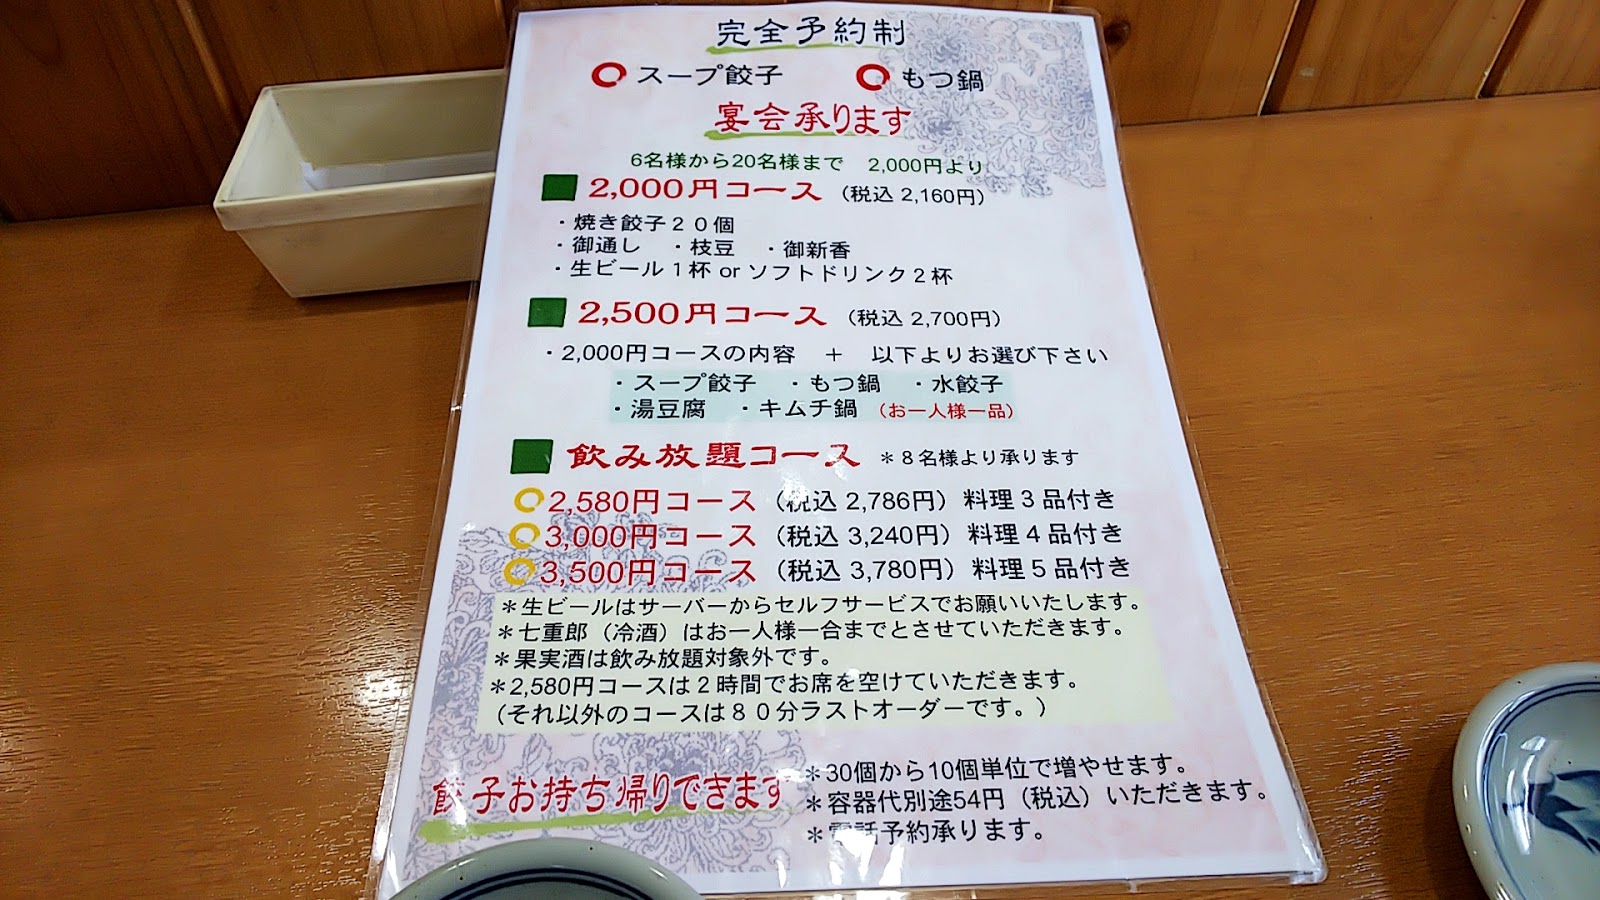 完全予約制
スープ餃子 もつ鍋
宴会承ります
6名様から20名様まで 2,000円より
2,000円コース (税込 2,160円)
・焼き餃子20個
・御通し ・枝豆 ・御新香
・生ビール1杯 or ソフトドリンク2杯
2,500円コース (税込 2,700円)
・2,000円コースの内容 + 以下よりお選び下さい
・スープ餃子 ・もつ鍋 ・水餃子
・湯豆腐 ・キムチ鍋 (お一人様一品)
飲み放題コース *8名様より承ります
2,580円コース (税込 2,786円) 料理3品付き
3,000円コース (税込 3,240円) 料理4品付き
3,500円コース (税込 3,780円) 料理5品付き
*生ビールはサーバーからセルフサービスでお願いいたします。
*七重郎(冷酒)はお一人様一合までとさせていただきます。
*果実酒は飲み放題対象外です。
*2,580円コースは2時間でお席を空けていただきます。
(それ以外のコースは80分ラストオーダーです。)
餃子お持ち帰りできます
*30個から10個単位で増やせます。
*容器代別途54円(税込)いただきます。
*電話予約承ります。